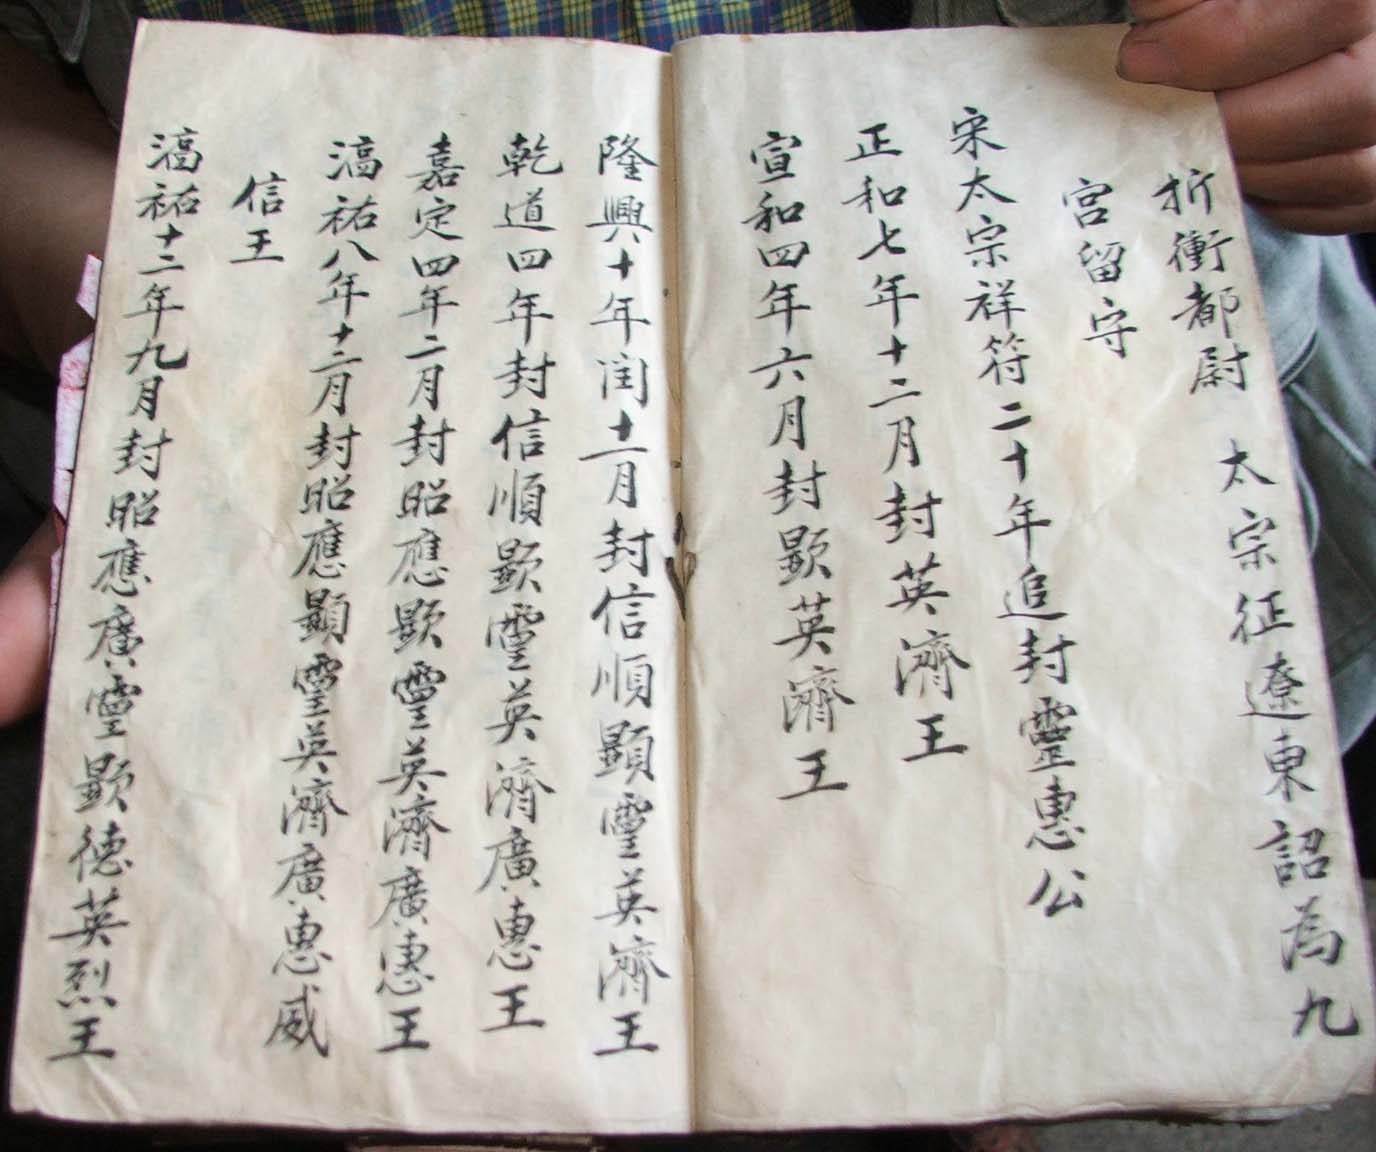 折衝都尉 太宗征遼東詔為九
宮留守
宋太宗祥符二十年追封靈惠公
正和七年十二月封英濟王
宣和四年六月封顕英濟王
隆興十年閏十一月封信順顯靈英濟王
乾道四年封信順顕靈英濟廣惠王
嘉定四年二月封昭應顕靈英濟廣惠王
滈祐八年十二月封昭應顯靈英濟廣惠威
信王
滈祐十二年九月封昭應廣靈顕德英烈王